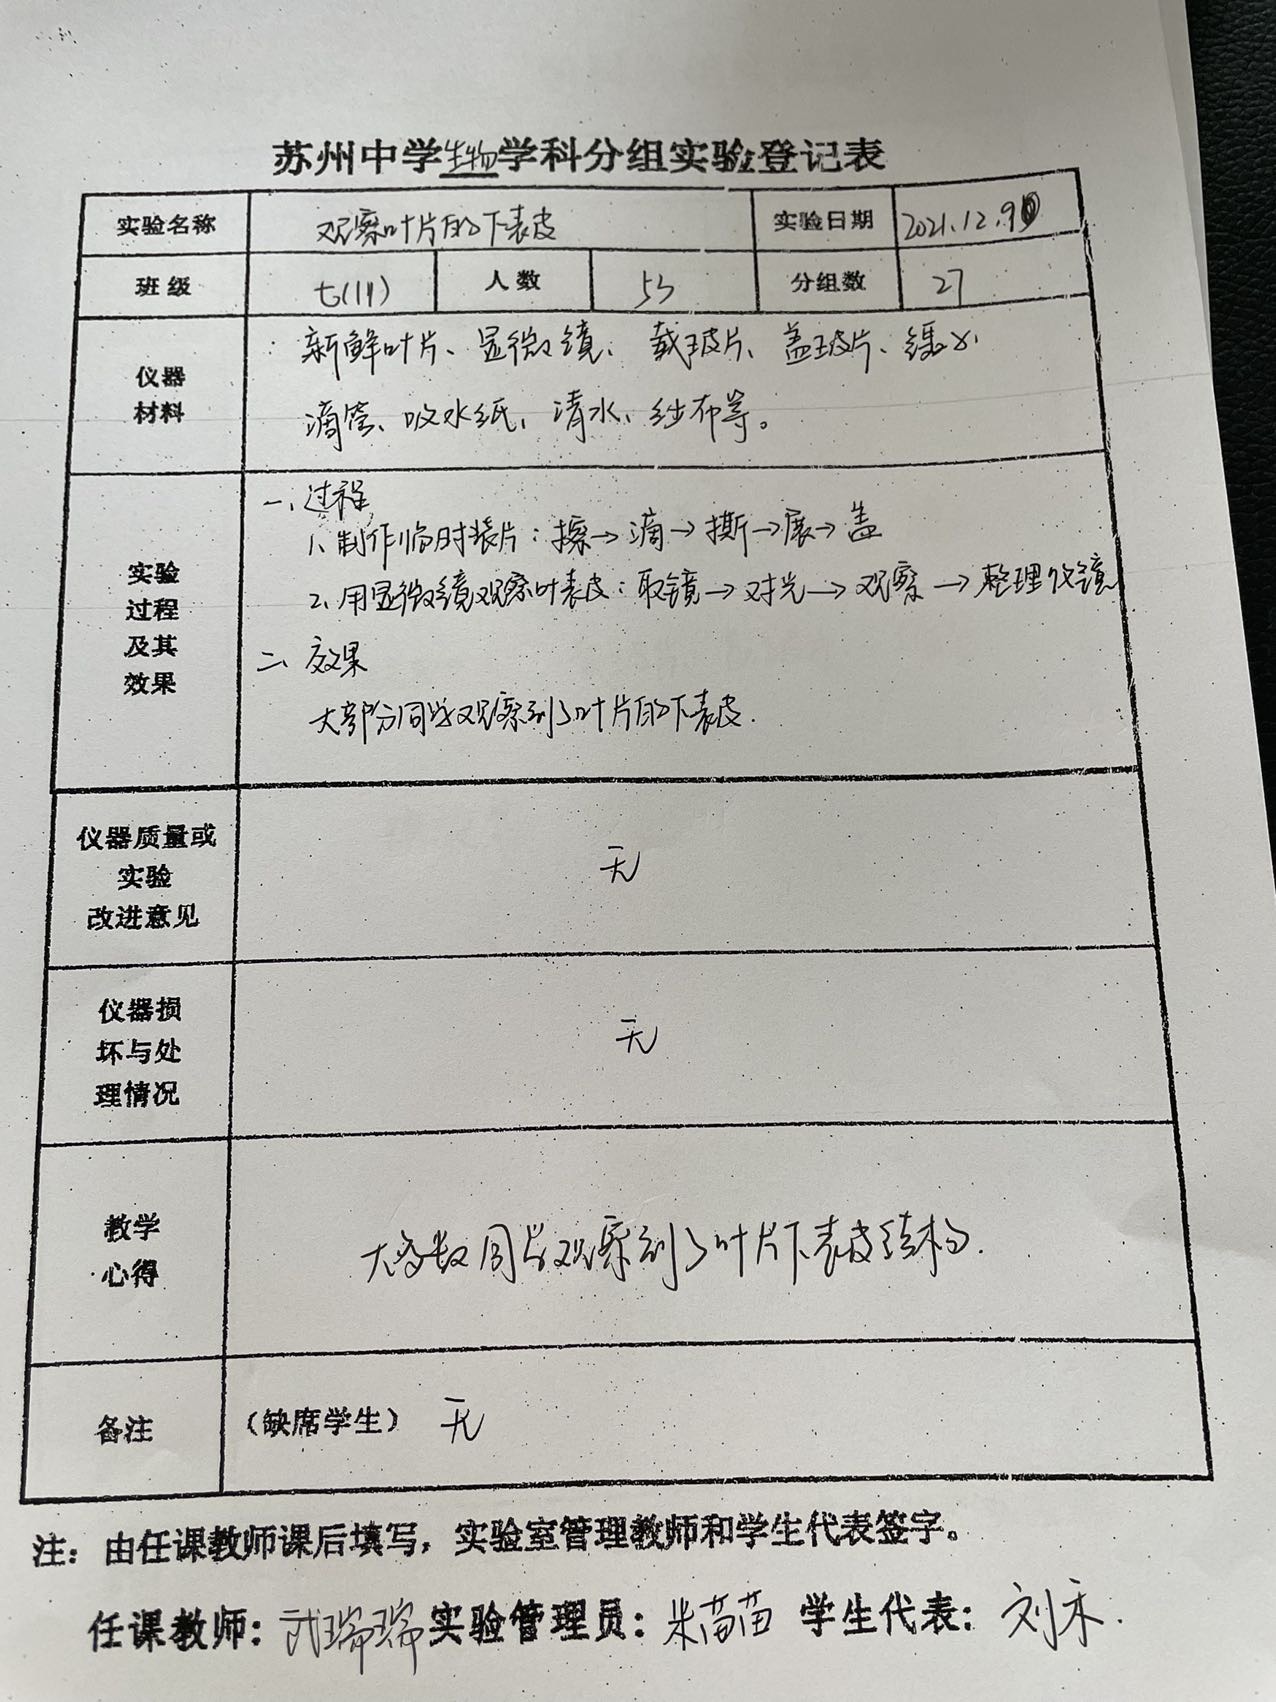 苏州中学生物学科分组实验登记表
实验名称 观察叶片的下表皮 实验日期 2021.12.9
班级 七(11) 人数 53 分组数 27
仪器
材料
新鲜叶片、显微镜、载玻片、盖玻片、镊子、
滴管、吸水纸、清水、纱布等。
实验
过程
及其
效果
一、过程
1、制作临时装片：擦→滴→撕→展→盖
2、用显微镜观察叶表皮：取镜→对光→观察→整理收镜
二、效果
大部分同学观察到了叶片的下表皮.
仪器质量或
实验
改进意见
无
仪器损
坏与处
理情况
无
教学
心得
大多数同学观察到了叶片下表皮结构.
备注 （缺席学生） 无
注：由任课教师课后填写，实验室管理教师和学生代表签字。
任课教师：武瑞瑞 实验管理员：朱苗苗 学生代表：刘禾.